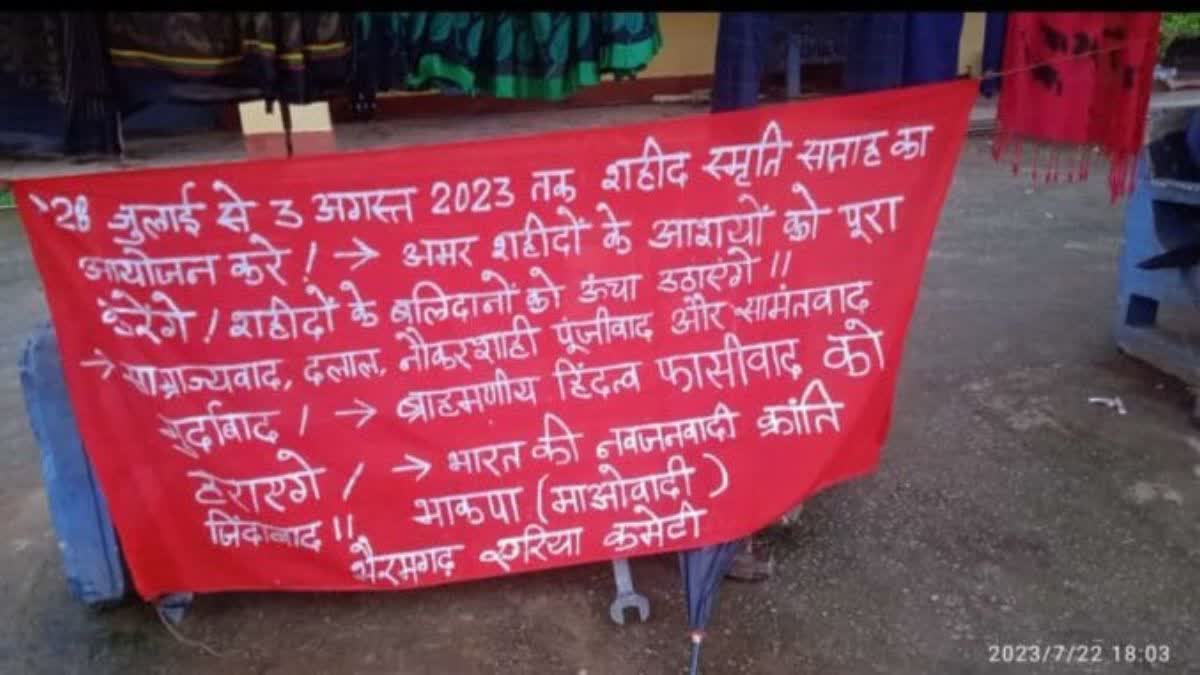 '28 जुलाई से 3 अगस्त 2023 तक शहीद स्मृति सप्ताह का
आयोजन करे! → अमर शहीदों के आशयों को पूरा
करेंगे! शहीदों के बलिदानों को ऊंचा उठाएंगे!!
→ साम्राज्यवाद, दलाल, नौकरशाही पूंजीवाद और सामंतवाद
मुर्दाबाद! → ब्राहमणीय हिंदत्व फासीवाद को
हराएगे! → भारत की नवजनवादी क्रांति
जिंदाबाद!! भाकपा (माओवादी)
भैरमगढ़ एरिया कमेटी
2023/7/22 18:03